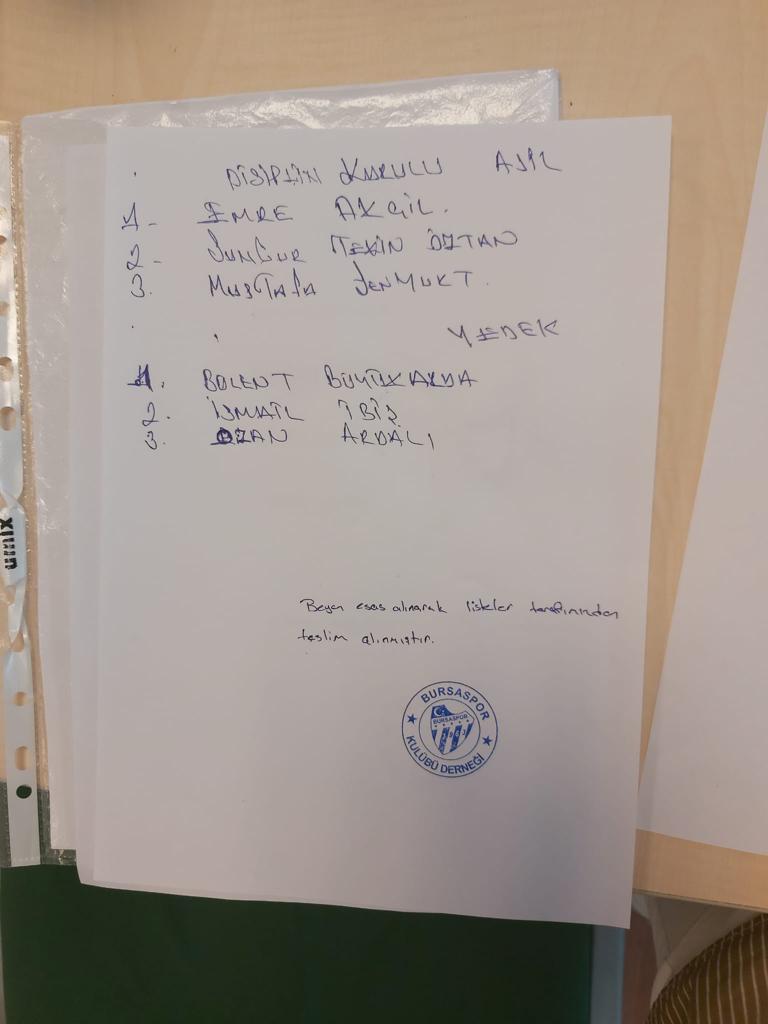 DİSİPLİN KURULU ASİL
1- EMRE AKGİL.
2- SUNGUR TEKİN ÖZTAN
3. MUSTAFA ŞENYURT.
YEDEK
1. BÜLENT BÜYÜKARDA
2. İSMAİL İBİŞ
3. OZAN ARDALI
Beyan esas alınarak listeler tarafımızdan
teslim alınmıştır.
BURSASPOR
BURSASPOR
1963
KULÜBÜ DERNEĞİ
umix